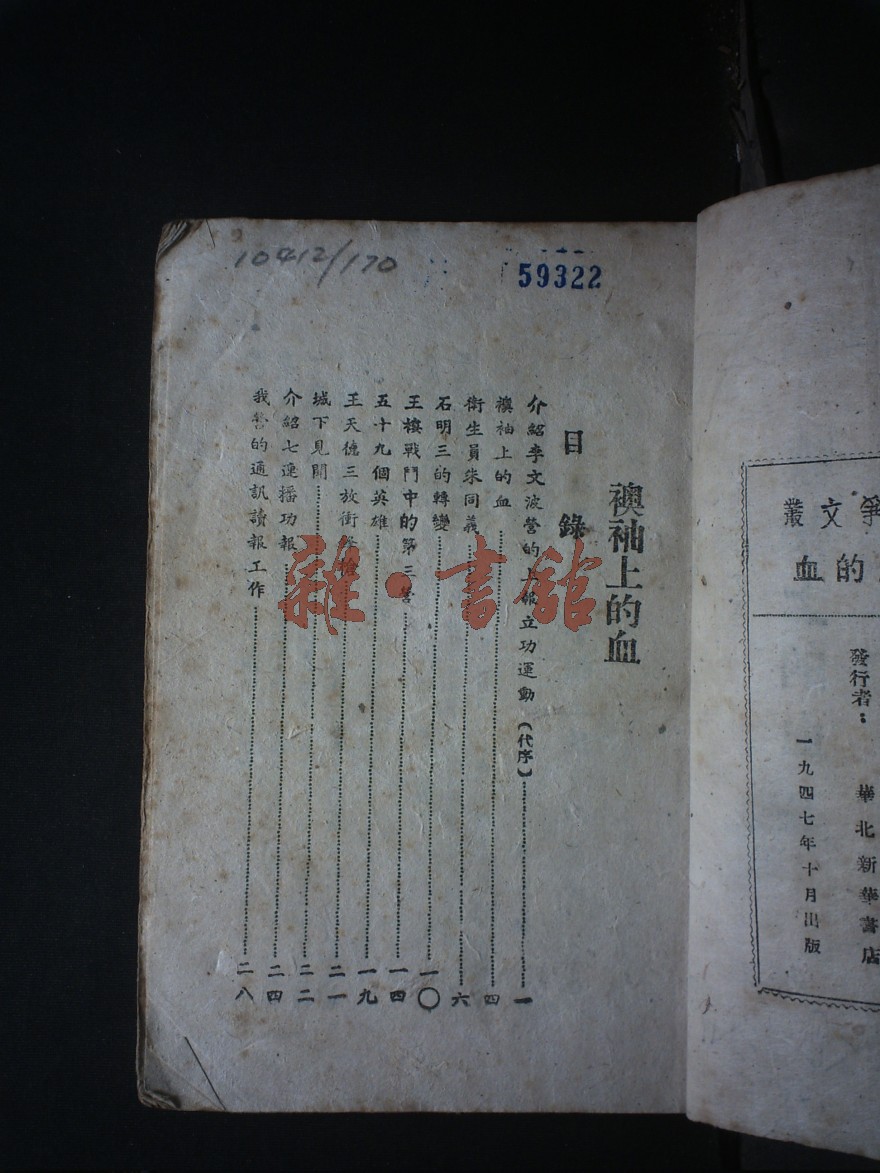 10412/170
59322
襖袖上的血
目錄
介紹李文波營的 立功運動(代序)……一
襖袖上的血……四
衛生員朱同義……六
石明三的轉變……一〇
王樓戰鬥中的第三營……一四
五十九個英雄……一九
王天德三放衝鋒……二一
城下見聞……二二
介紹七連播功報……二四
我營的通訊讀報工作……二八
雜·書館
文叢
的血
發行者:
華北新華書店
一九四七年十月出版